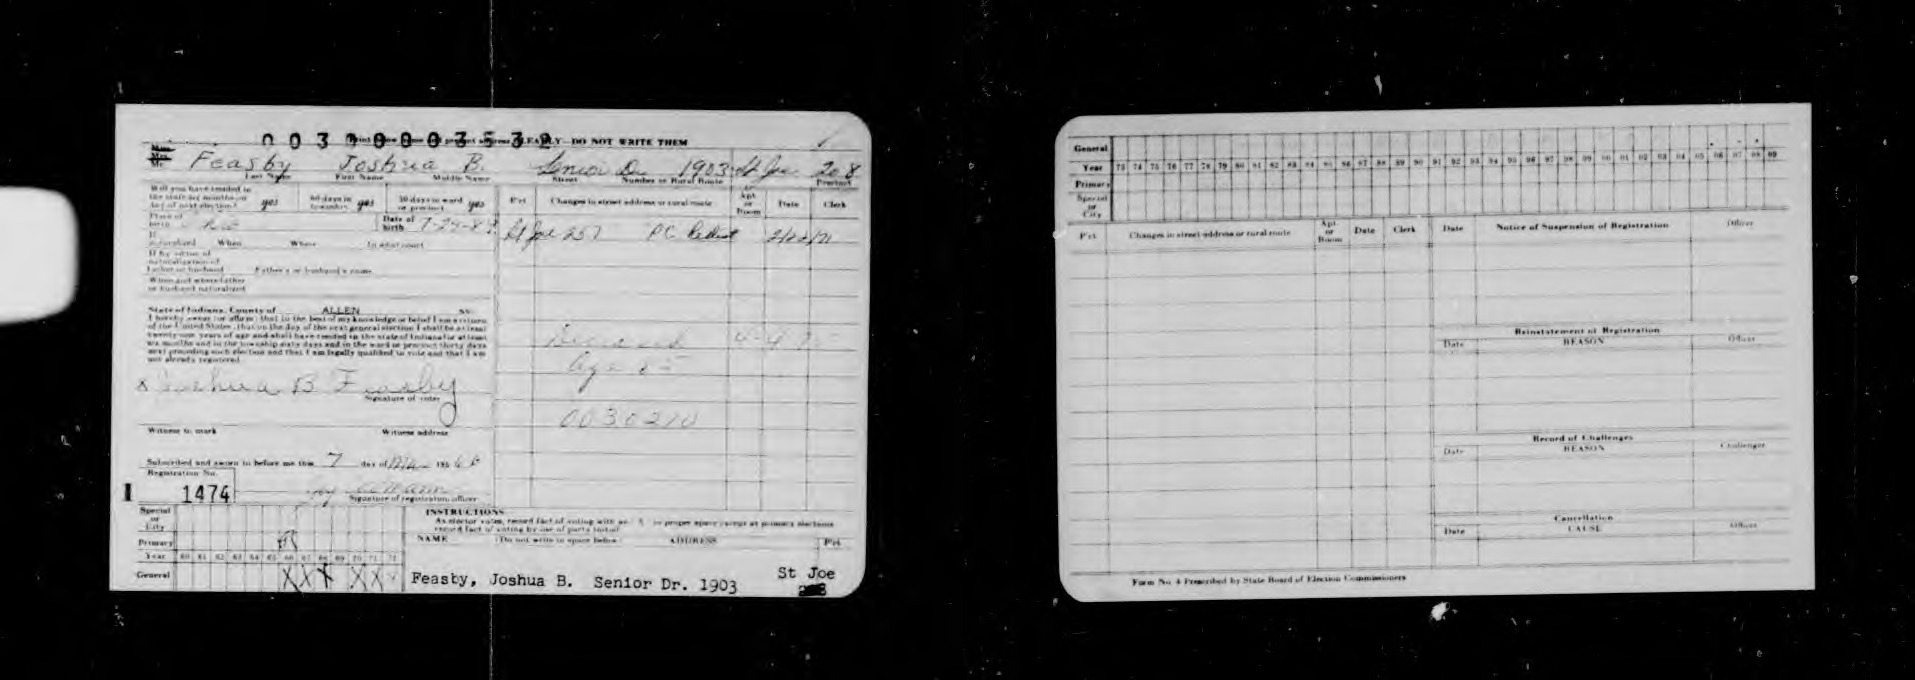 0030000353
EARLY—DO NOT WRITE THEM
Feasby Joshua B. Senior Dr. 1903 St Joe 208
Last Name First Name Middle Name Street Number or Rural Route Precinct
Will you have resided in
the state six months on
day of next election? yes 60 days in
township yes 30 days in ward
or precinct yes
Pct Changes in street address or rural route Apt. or Room Date Clerk
Place of
birth
Date of
birth
St Joe 257 PC 2/22/71
If
naturalized When Where In what court
If by virtue of
naturalization of
father or husband Father's or husband's name
When and where father
or husband naturalized
State of Indiana, County of ALLEN SS:
I hereby swear (or affirm) that to the best of my knowledge or belief I am a citizen
of the United States, that on the day of the next general election I shall be at least
twenty-one years of age and shall have resided in the state of Indiana for at least
six months and in the township sixty days and in the ward or precinct thirty days
next preceding such election and that I am legally qualified to vote and that I am
not already registered.
Deceased
Age 85
0030210
X Joshua B Feasby
Signature of voter
Witness to mark Witness address
Subscribed and sworn to before me this 7 day of
Registration No.
1474
Signature of registration officer
INSTRUCTIONS
As elector votes, record fact of voting with an X in proper space except at primary elections
record fact of voting by use of party initial
NAME (Do not write in space below) ADDRESS Pct
Special
or
City
Primary
Year 60 61 62 63 64 65 66 67 68 69 70 71 72
General X X X X X
Feasby, Joshua B. Senior Dr. 1903 St Joe
General
Year 73 74 75 76 77 78 79 80 81 82 83 84 85 86 87 88 89 90 91 92 93 94 95 96 97 98 99 00 01 02 03 04 05 06 07 08 09
Primary
Special
or
City
Pct Changes in street address or rural route Apt. or Room Date Clerk
Date Notice of Suspension of Registration Officer
Reinstatement of Registration
Date REASON Officer
Record of Challenges
Date REASON Challenger
Cancellation
Date CAUSE Officer
Form No. 4 Prescribed by State Board of Election Commissioners